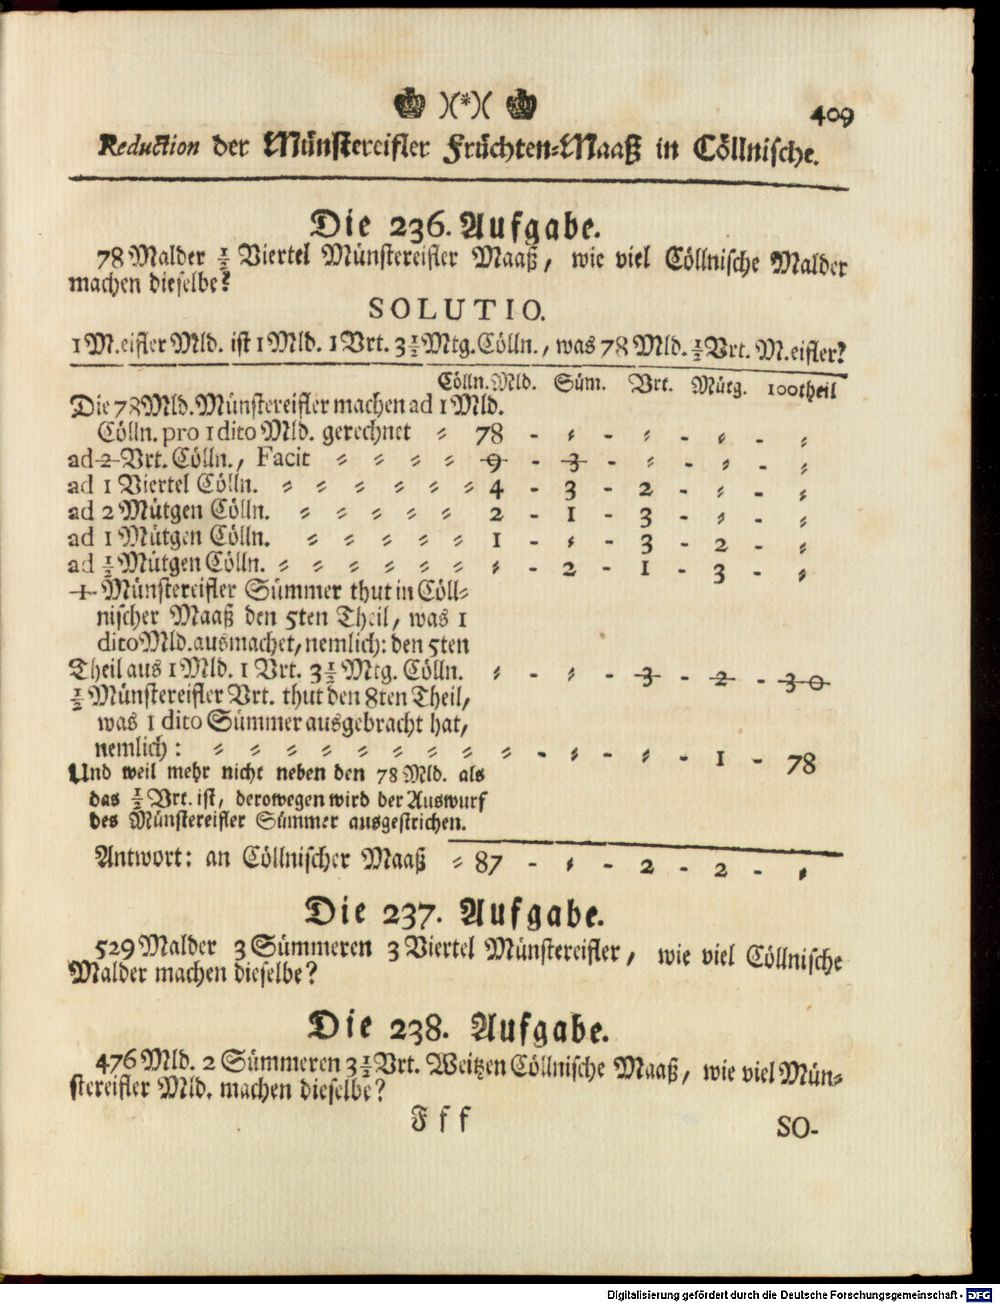 )(*)( 409
Reduction der Münstereifler Früchten-Maaß in Cöllnische.
Die 236. Aufgabe.
78 Malder ½ Viertel Münstereifler Maaß, wie viel Cöllnische Malder
machen dieselbe?
SOLUTIO.
1 M.eifler Mld. ist 1 Mld. 1 Vrt. 3½ Mtg. Cölln., was 78 Mld. ½ Vrt. M.eifler?
Cölln. Mld. Süm. Vrt. Mütg. 100theil
Die 78 Mld. Münstereifler machen ad 1 Mld.
Cölln. pro 1 dito Mld. gerechnet = 78 - = - = - = - =
ad 2 Vrt. Cölln., Facit = = = = 9 - 3 - = - = - =
ad 1 Viertel Cölln. = = = = = = 4 - 3 - 2 - = - =
ad 2 Mütgen Cölln. = = = = = 2 - 1 - 3 - = - =
ad 1 Mütgen Cölln. = = = = = 1 - = - 3 - 2 - =
ad ½ Mütgen Cölln. = = = = = = = - 2 - 1 - 3 - =
1 Münstereifler Sümmer thut in Cöll=
nischer Maaß den 5ten Theil, was 1
dito Mld. ausmachet, nemlich: den 5ten
Theil aus 1 Mld. 1 Vrt. 3½ Mtg. Cölln. = - = - 3 - 2 - 30
½ Münstereifler Vrt. thut den 8ten Theil,
was 1 dito Sümmer ausgebracht hat,
nemlich: = = = = = = = = = - = - = - 1 - 78
Und weil mehr nicht neben den 78 Mld. als
das ½ Vrt. ist, derowegen wird der Auswurf
des Münstereifler Sümmer ausgestrichen.
Antwort: an Cöllnischer Maaß = 87 - = - 2 - 2 - =
Die 237. Aufgabe.
529 Malder 3 Sümmeren 3 Viertel Münstereifler, wie viel Cöllnische
Malder machen dieselbe?
Die 238. Aufgabe.
476 Mld. 2 Sümmeren 3½ Vrt. Weitzen Cöllnische Maaß, wie viel Mün=
stereifler Mld. machen dieselbe?
Fff SO-
Digitalisierung gefördert durch die Deutsche Forschungsgemeinschaft - DFG